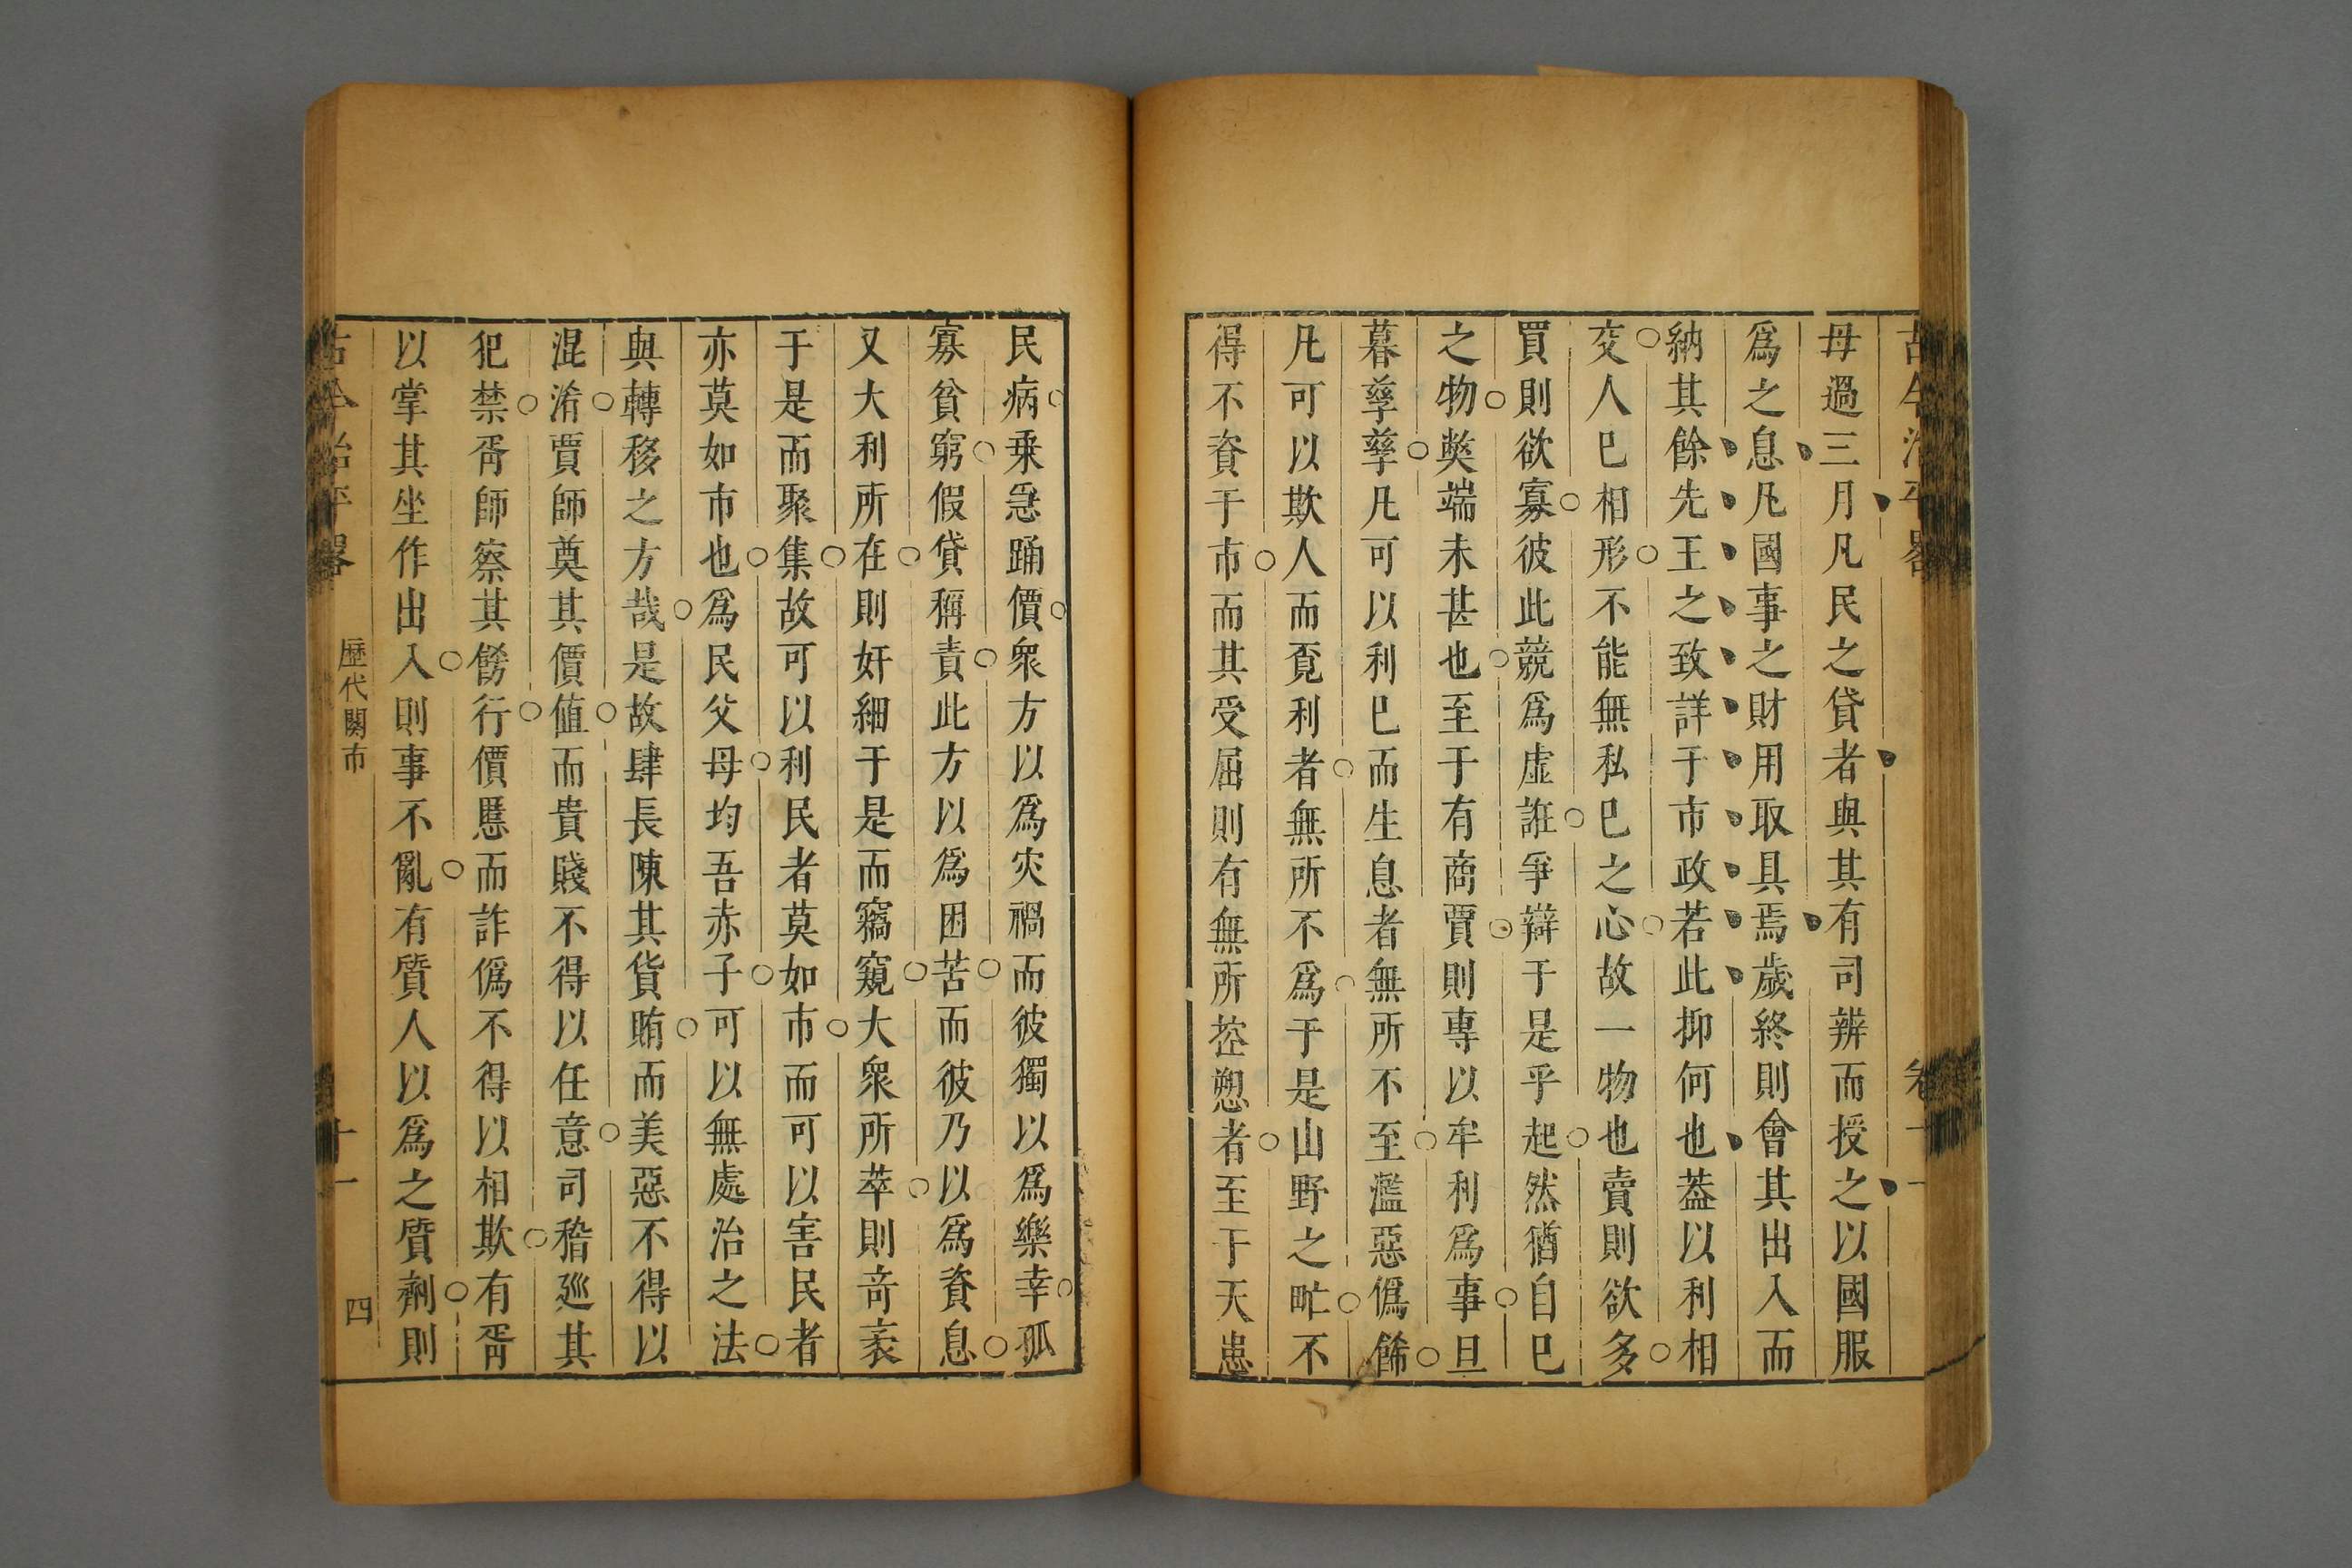 毋過三月凡民之貸者與其有司辨而授之以國服
爲之息凡國事之財用取具焉歲終則會其出入而
納其餘先王之致詳于市政若此抑何也葢以利相
交人已相形不能無私已之心故一物也賣則欲多
買則欲寡彼此競爲虛誑爭辯于是乎起然猶自已
之物獘端未甚也至于有商賈則專以牟利爲事旦
暮孳孳凡可以利已而生息者無所不至濫惡僞餙
凡可以欺人而覔利者無所不爲于是山野之甿不
得不資于市而其受屈則有無所控愬者至于天患
民病乗急踊價衆方以爲灾禍而彼獨以爲樂幸孤
寡貧窮假貸稱責此方以爲困苦而彼乃以爲資息
又大利所在則奸細于是而竊窺大衆所萃則竒衺
于是而聚集故可以利民者莫如市而可以害民者
亦莫如市也爲民父母均吾赤子可以無處治之法
與轉移之方哉是故肆長陳其貨賄而美惡不得以
混淆賈師奠其價値而貴賤不得以任意司稽廵其
犯禁胥師察其餝行價慝而詐僞不得以相欺有胥
以掌其坐作出入則事不亂有質人以爲之質劑則
古今治平畧
歷代關市
十一
四